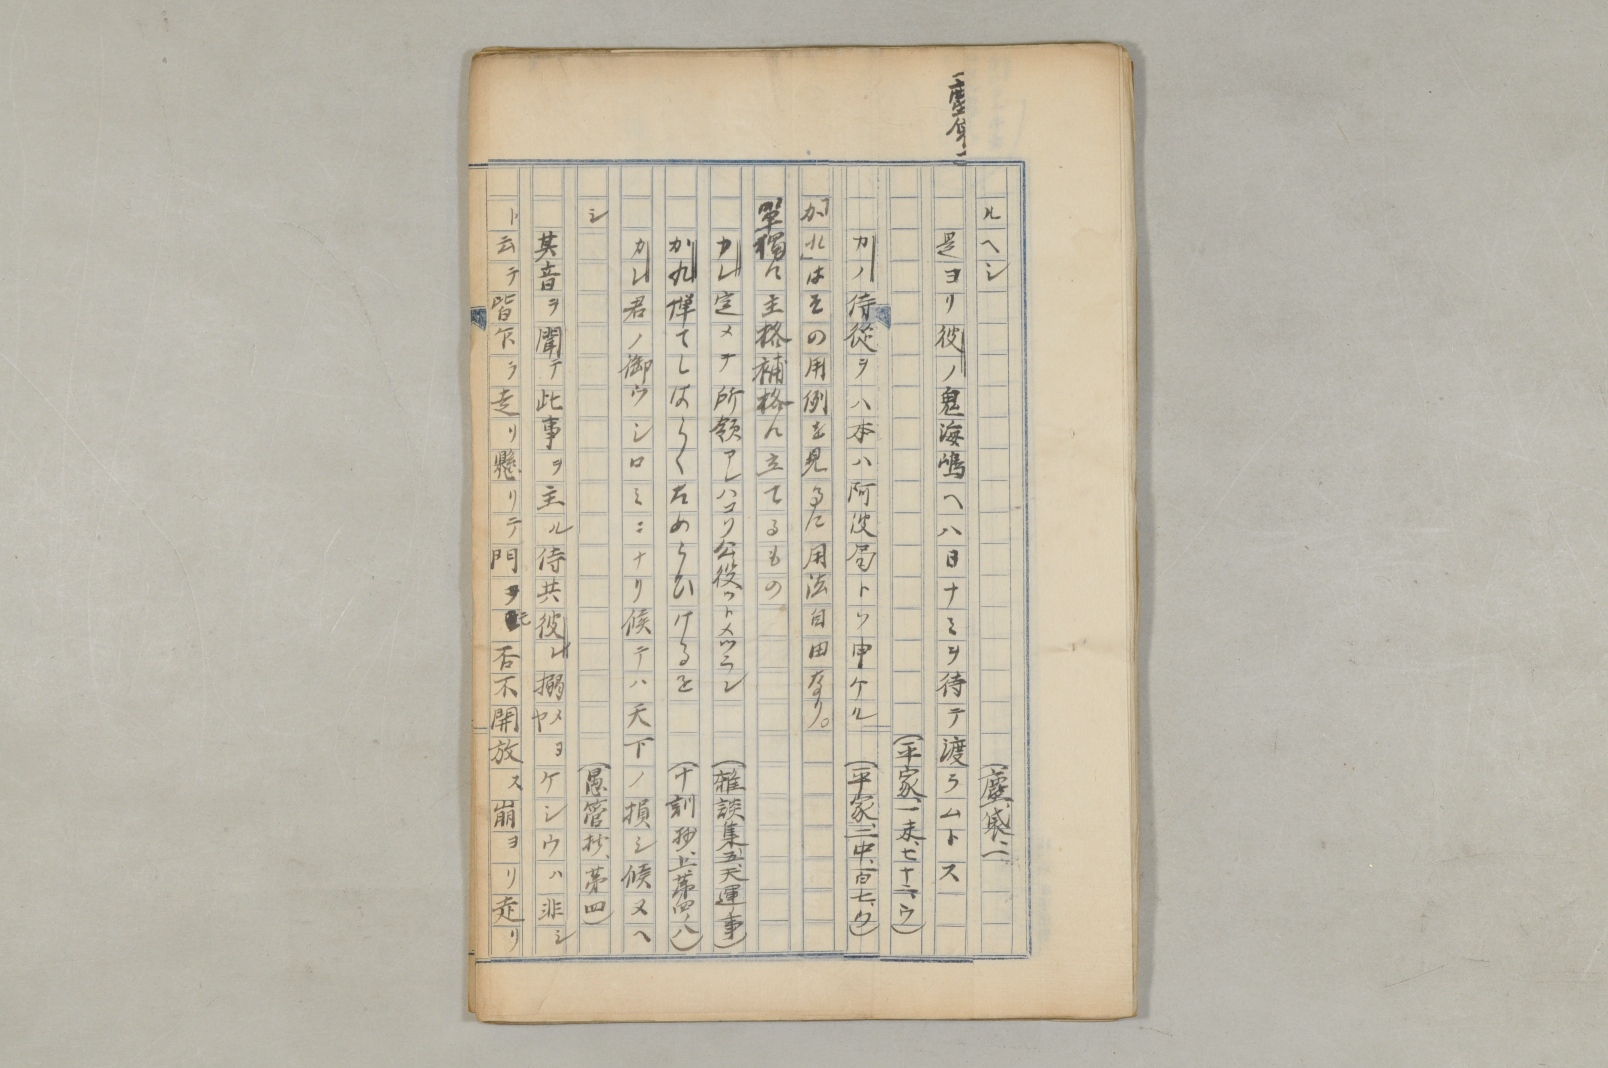 ルヘシ
(塵袋、二)
是ヨリ彼ノ鬼海嶋ヘハ日ナミヲ待テ渡ラムトス
(平家、一末、七十二、ウ)
カノ侍従ヲハ本ハ阿波局トソ申ケル
(平家、二中、百七、ウ)
「かれ」はその用例を見るに用法自由なり。
單獨に主格補格に立てるもの
カレ定メテ所領アレハコソ公役ツトメツラン
(雜談集五、天運事)
かれ憚てしはらくためらひけるを
(十訓抄、上、第四ノ八)
カレ君ノ御ウシロミニナリ候テハ天下ノ損シ候ヌヘ
シ
(愚管抄、第四)
其音ヲ聞テ此事ヲ主ル侍共彼レ搦メヨヤケシウハ非シ
ト云テ皆下ラ走リ懸リテ門ヲ否不開放ス崩ヨリ走リ